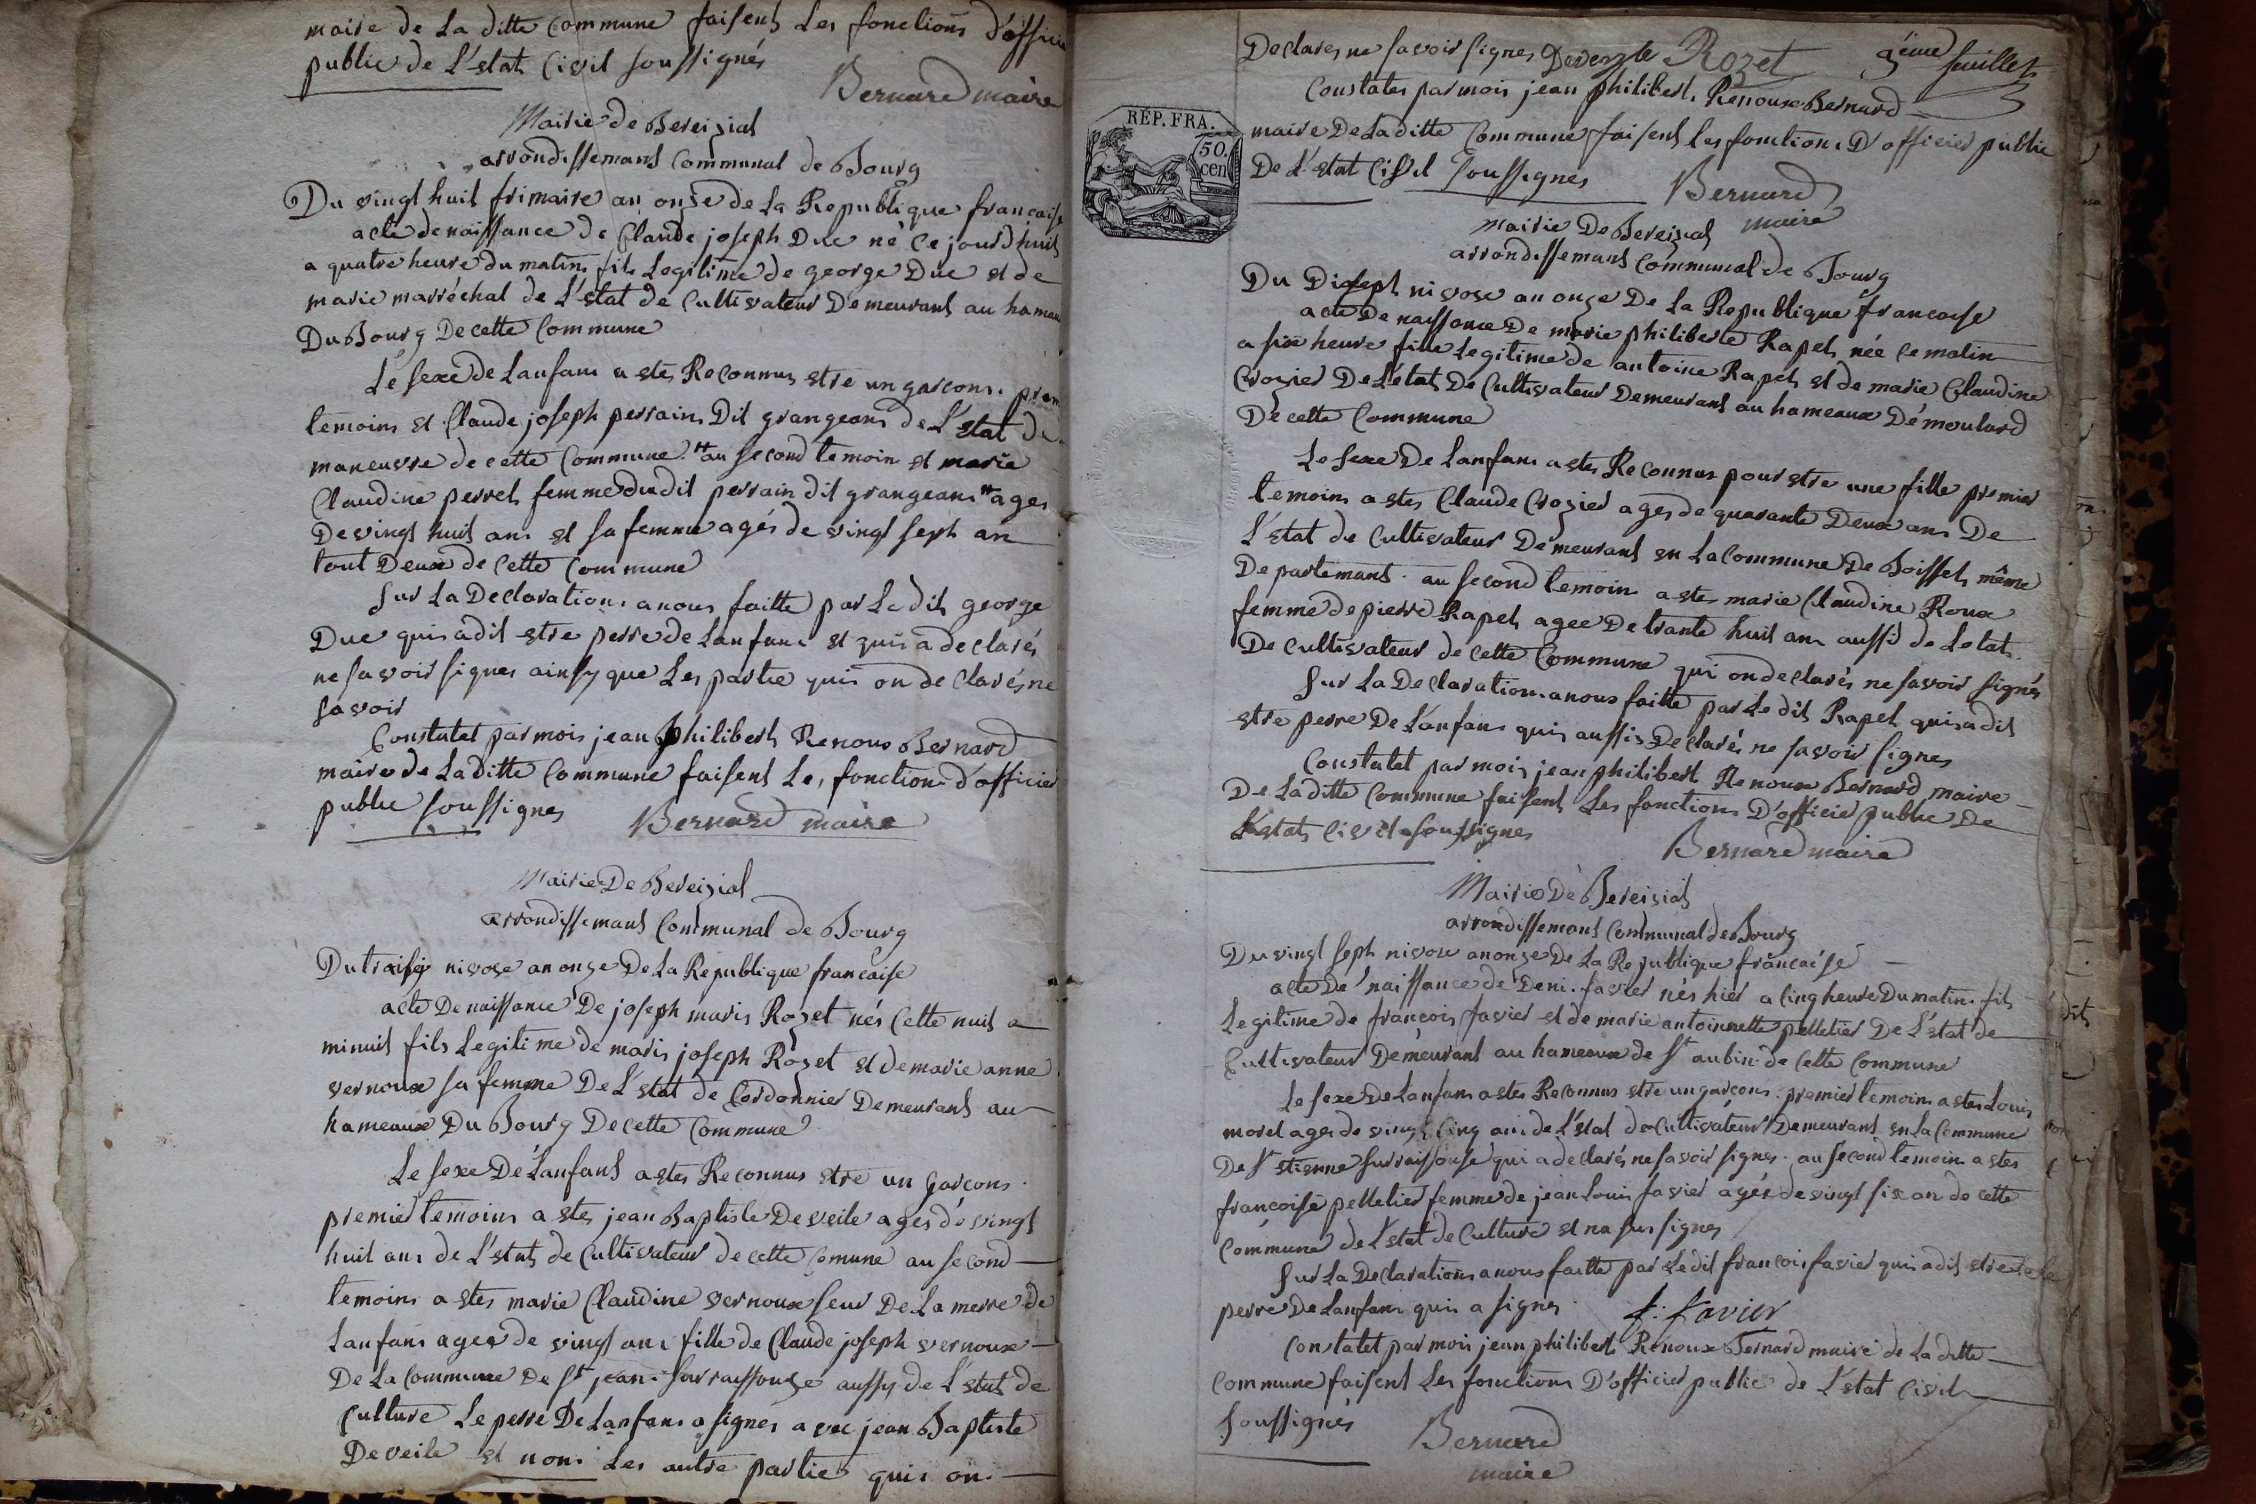 maire de La ditte Commune faisent Les fonctions d'officier
public de L'estat Civil soussignés
Bernard maire
Mairie de Bereisiat
arrondissemant Communal de Bourg
Du vingt huit frimaire an onze de La Republique française
acte de naissance de Claude joseph Duc né Ce jourdhuit
a quatre heure du matin fils Legitime de george Duc et de
marie marréchal de L'estat de Cultivateur Demeurant au hamau
Du Bourg De cette Commune
Le sexe de Lanfans a etes Reconnus etre un garcons. prem
temoins et Claude joseph perrain Dit grangeans de L'estat de
maneuvre de cette Commune au second temoin et marie
Claudine perret femme du dit perrain dit grangeans ages
De vingt huit ans et sa femme agés de vingt sept an
tout Deux de Cette Commune
Sur La Declaration a nous faitte par Le dit george
Duc quis a dit estre perre de Lanfans et quis a declarés
ne savoir signes ainsy que Les partie quis on declarés ne
savoir
Constatet par mois jean philibert Renoux Bernard
maire de La ditte Commune faisent Les fonctions d'officier
public soussignes
Bernard maire
Mairie De Bereisiat
arrondissemant Communal de Bourg
Du traisse nivose an onze De La Republique française
acte De naissance De joseph maris Rozet nés Cette nuit a
minuit fils Legitime de maris joseph Rozet et de marie anne
vernoux sa femme De L'estat de Cordonnier Demeurant au
hameaux Du Bourg De cette Commune
Le sexe De Lanfans a etes Reconnus etre un garcons.
premier temoins a etes jean Baptiste Deveile ages de vingt
huit ans de L'estat de Cultivateur de cette Comune au second
temoins a etes marie Claudine vernoux seur De La merre de
Lanfans agee de vingt ans fille de Claude joseph vernoux
De La Commune De St jean sur raissouse aussy de L'estat de
Culture Le perre De Lanfans a signes avec jean Baptiste
Deveile et non Les autre partie quis on
Declares ne savoir signes Deveyle Rozet
3eme feuillet
Constates par mois jean philibert Renoux Bernard
RÉP. FRA.
50.
cen
maire De La ditte Commune faisent Les fonctions D'officier public
De L'estat Civil soussignes
Bernard
maire
Mairie De Bereisiat
arrondissemant Communal de Bourg
Du Disept nivose an onze De La Republique francaise
acte De naissance De marie philiberte Rapet née Ce matin
a six heure fille Legitime de antoine Rapet et de marie Claudine
Crozier De L'état De Cultivateur Demeurant au hameaux Démoulard
De cette Commune
Le sexe De Lanfans a etes Reconnus pour etre une fille premier
temoins a etes Claude Crozier ages de quarante Deux ans De
L'estat de Cultivateur Demeurant en La Commune De Boisset même
Departemant au second temoin a etes marie Claudine Roux
femme de pierre Rapet agee De trante huit ans aussi de L'etat
De Cultivateur de cette Commune qui on declarés ne savoir signés
Sur La Declaration a nous faitte par Le dit Rapet quis a dit
etre perre De L'anfans quis aussis Declarés ne savoir signes
Constatet par mois jean philibert Renoux Bernard maire
De La ditte Commune faisent Les fonctions D'officier public De
L'estat Civil soussignes
Bernard maire
Mairie De Bereisiat
arrondissemant Communal de Bourg
Du vingt sept nivose an onze De La Republique française
acte De naissance de Deni favier nés hier a cinq heure Du matin fils
Legitime de francois favier et de marie antoinette pelletier De L'estat de
Cultivateur Demeurant au hameaux de St aubin de Cette Commune
Le sexe De Lanfans a etes Reconnus etre un garcons premier temoins a etes Louis
morel ages de vingt Cinq ans de L'estat de Cultivateur Demeurant en La Commune
De St etienne sur raissouse qui a declarés ne savoir signes au second temoin a etes
francoise pelletier femme de jean Louis favier agée de vingt six an de cette
Commune de L'estat de Culture et na sus signes
Sur La Declaration a nous faitte par Le dit francois favier quis a dit etre Le
perre De Lanfans quis a signes
f: favier
Constatet par mois jean philibert Renoux Bernard maire de La ditte
Commune faisent Les fonctions D'officier public de L'estat Civil
soussignés
Bernard
maire